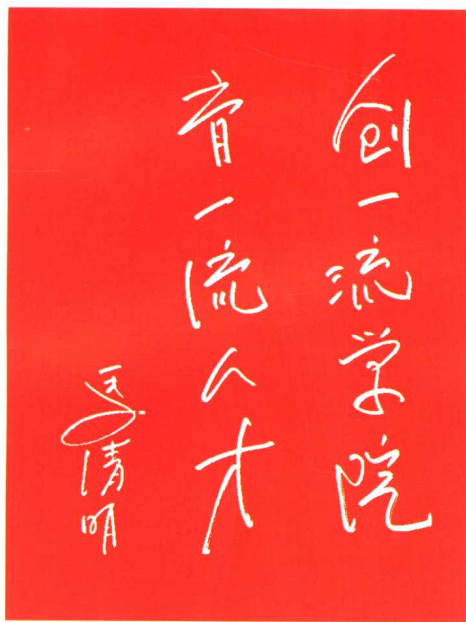 创一流学院
育一流人才
吴清明